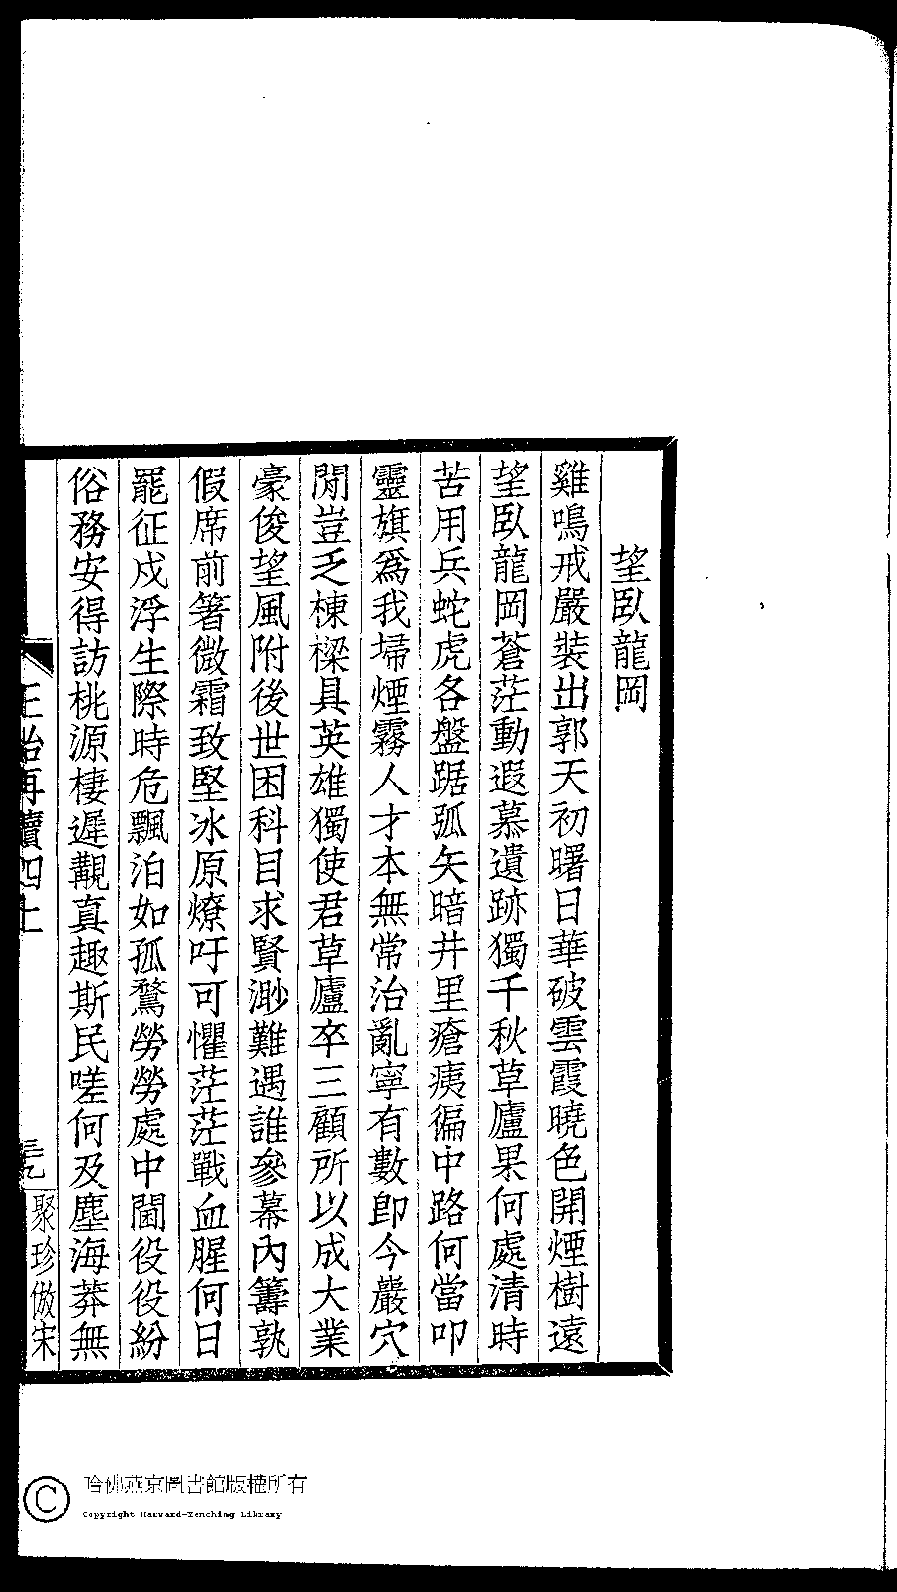 望臥龍岡
雞鳴戒嚴裝出郭天初曙日華破雲霞曉色開煙樹遠
望臥龍岡蒼茫動遐慕遺跡獨千秋草廬果何處清時
苦用兵蛇虎各盤踞弧矢暗井里瘡痍徧中路何當叩
靈旗爲我埽煙霧人才本無常治亂寧有數卽今巖穴
閒豈乏棟樑具英雄獨使君草廬卒三顧所以成大業
豪俊望風附後世困科目求賢渺難遇誰參幕內籌孰
假席前箸微霜致堅冰原燎吁可懼茫茫戰血腥何日
罷征戍浮生際時危飄泊如孤鶩勞勞處中闉役役紛
俗務安得訪桃源棲遲觀真趣斯民嗟何及塵海莽無
再續四上
聚珍倣宋
哈佛燕京圖書館版權所有
Copyright Harvard-Yenching Library